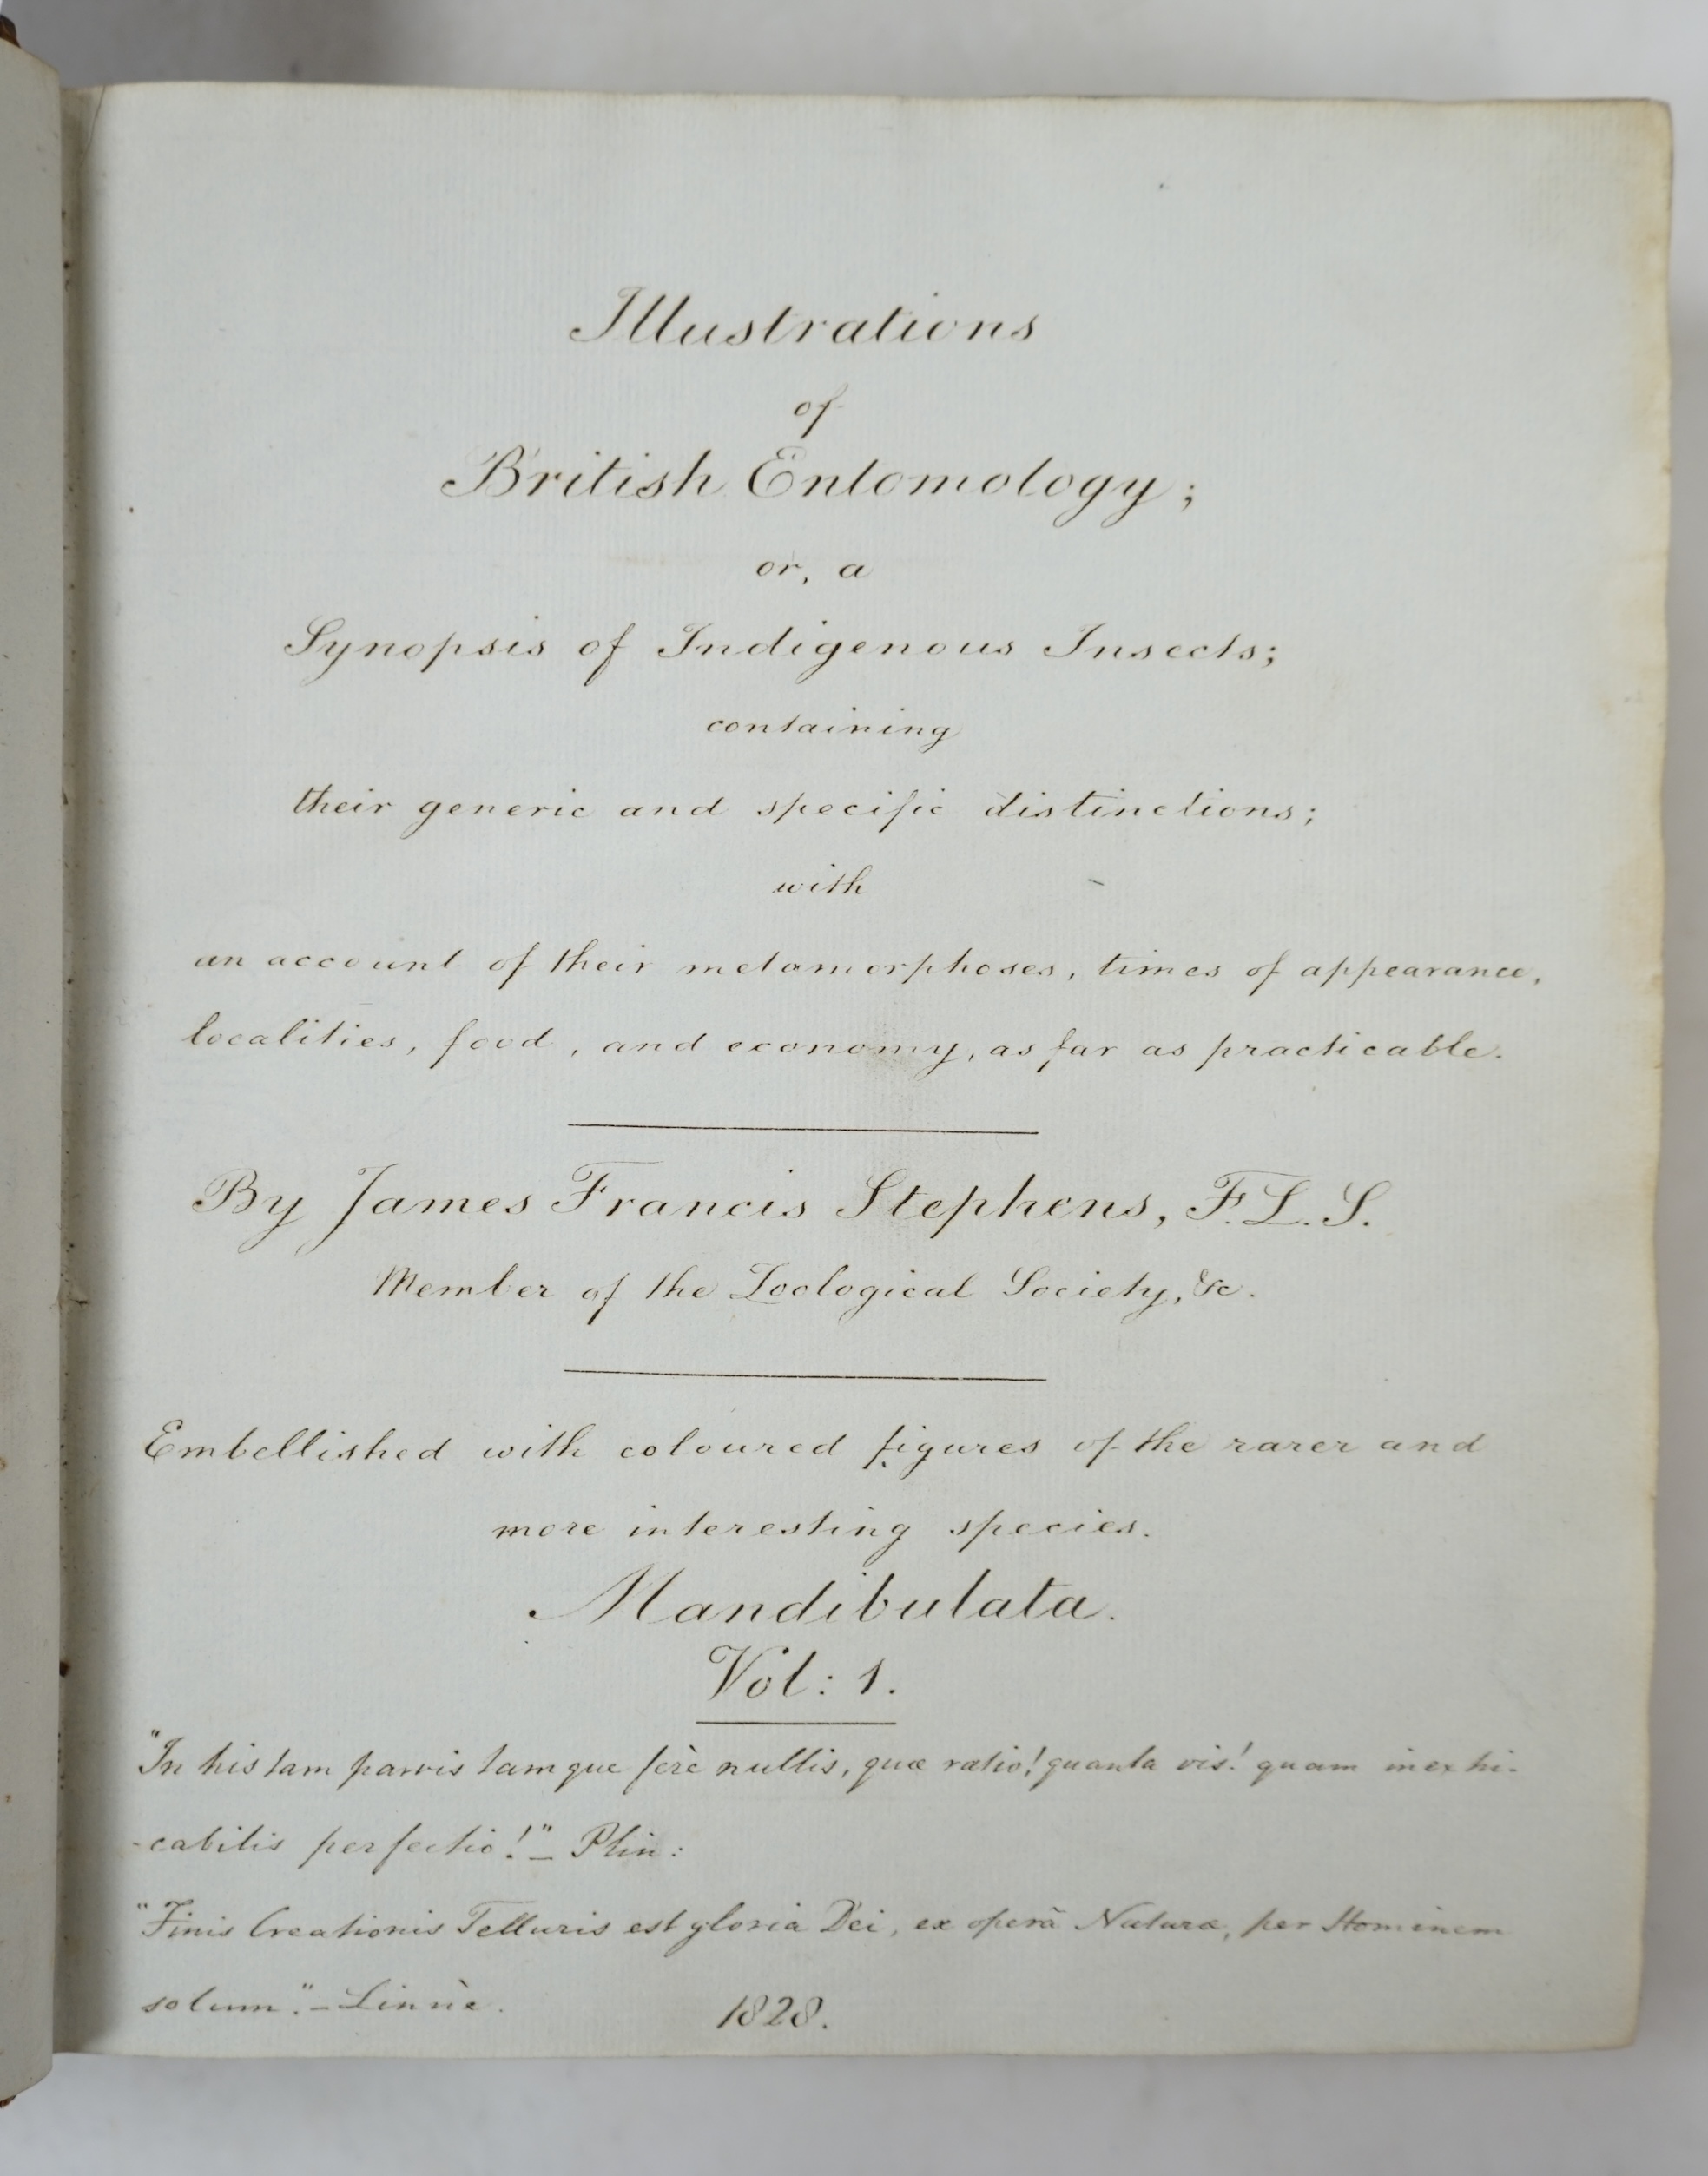 Illustrations
of
British Entomology;
or, a
Synopsis of Indigenous Insects;
containing
their generic and specific distinctions;
with
an account of their metamorphoses, times of appearance,
localities, food, and economy, as far as practicable.
By James Francis Stephens, F.L.S.
Member of the Zoological Society, &c.
Embellished with coloured figures of the rarer and
more interesting species.
Mandibulata.
Vol: 1.
"In his tam parvis tamque ferè nullis, quæ ratio! quanta vis! quam inextri-
-cabilis perfectio!" – Plin:
"Finis Creationis Telluris est gloria Dei, ex operâ Naturæ, per Hominem
solum." – Linnè.
1828.